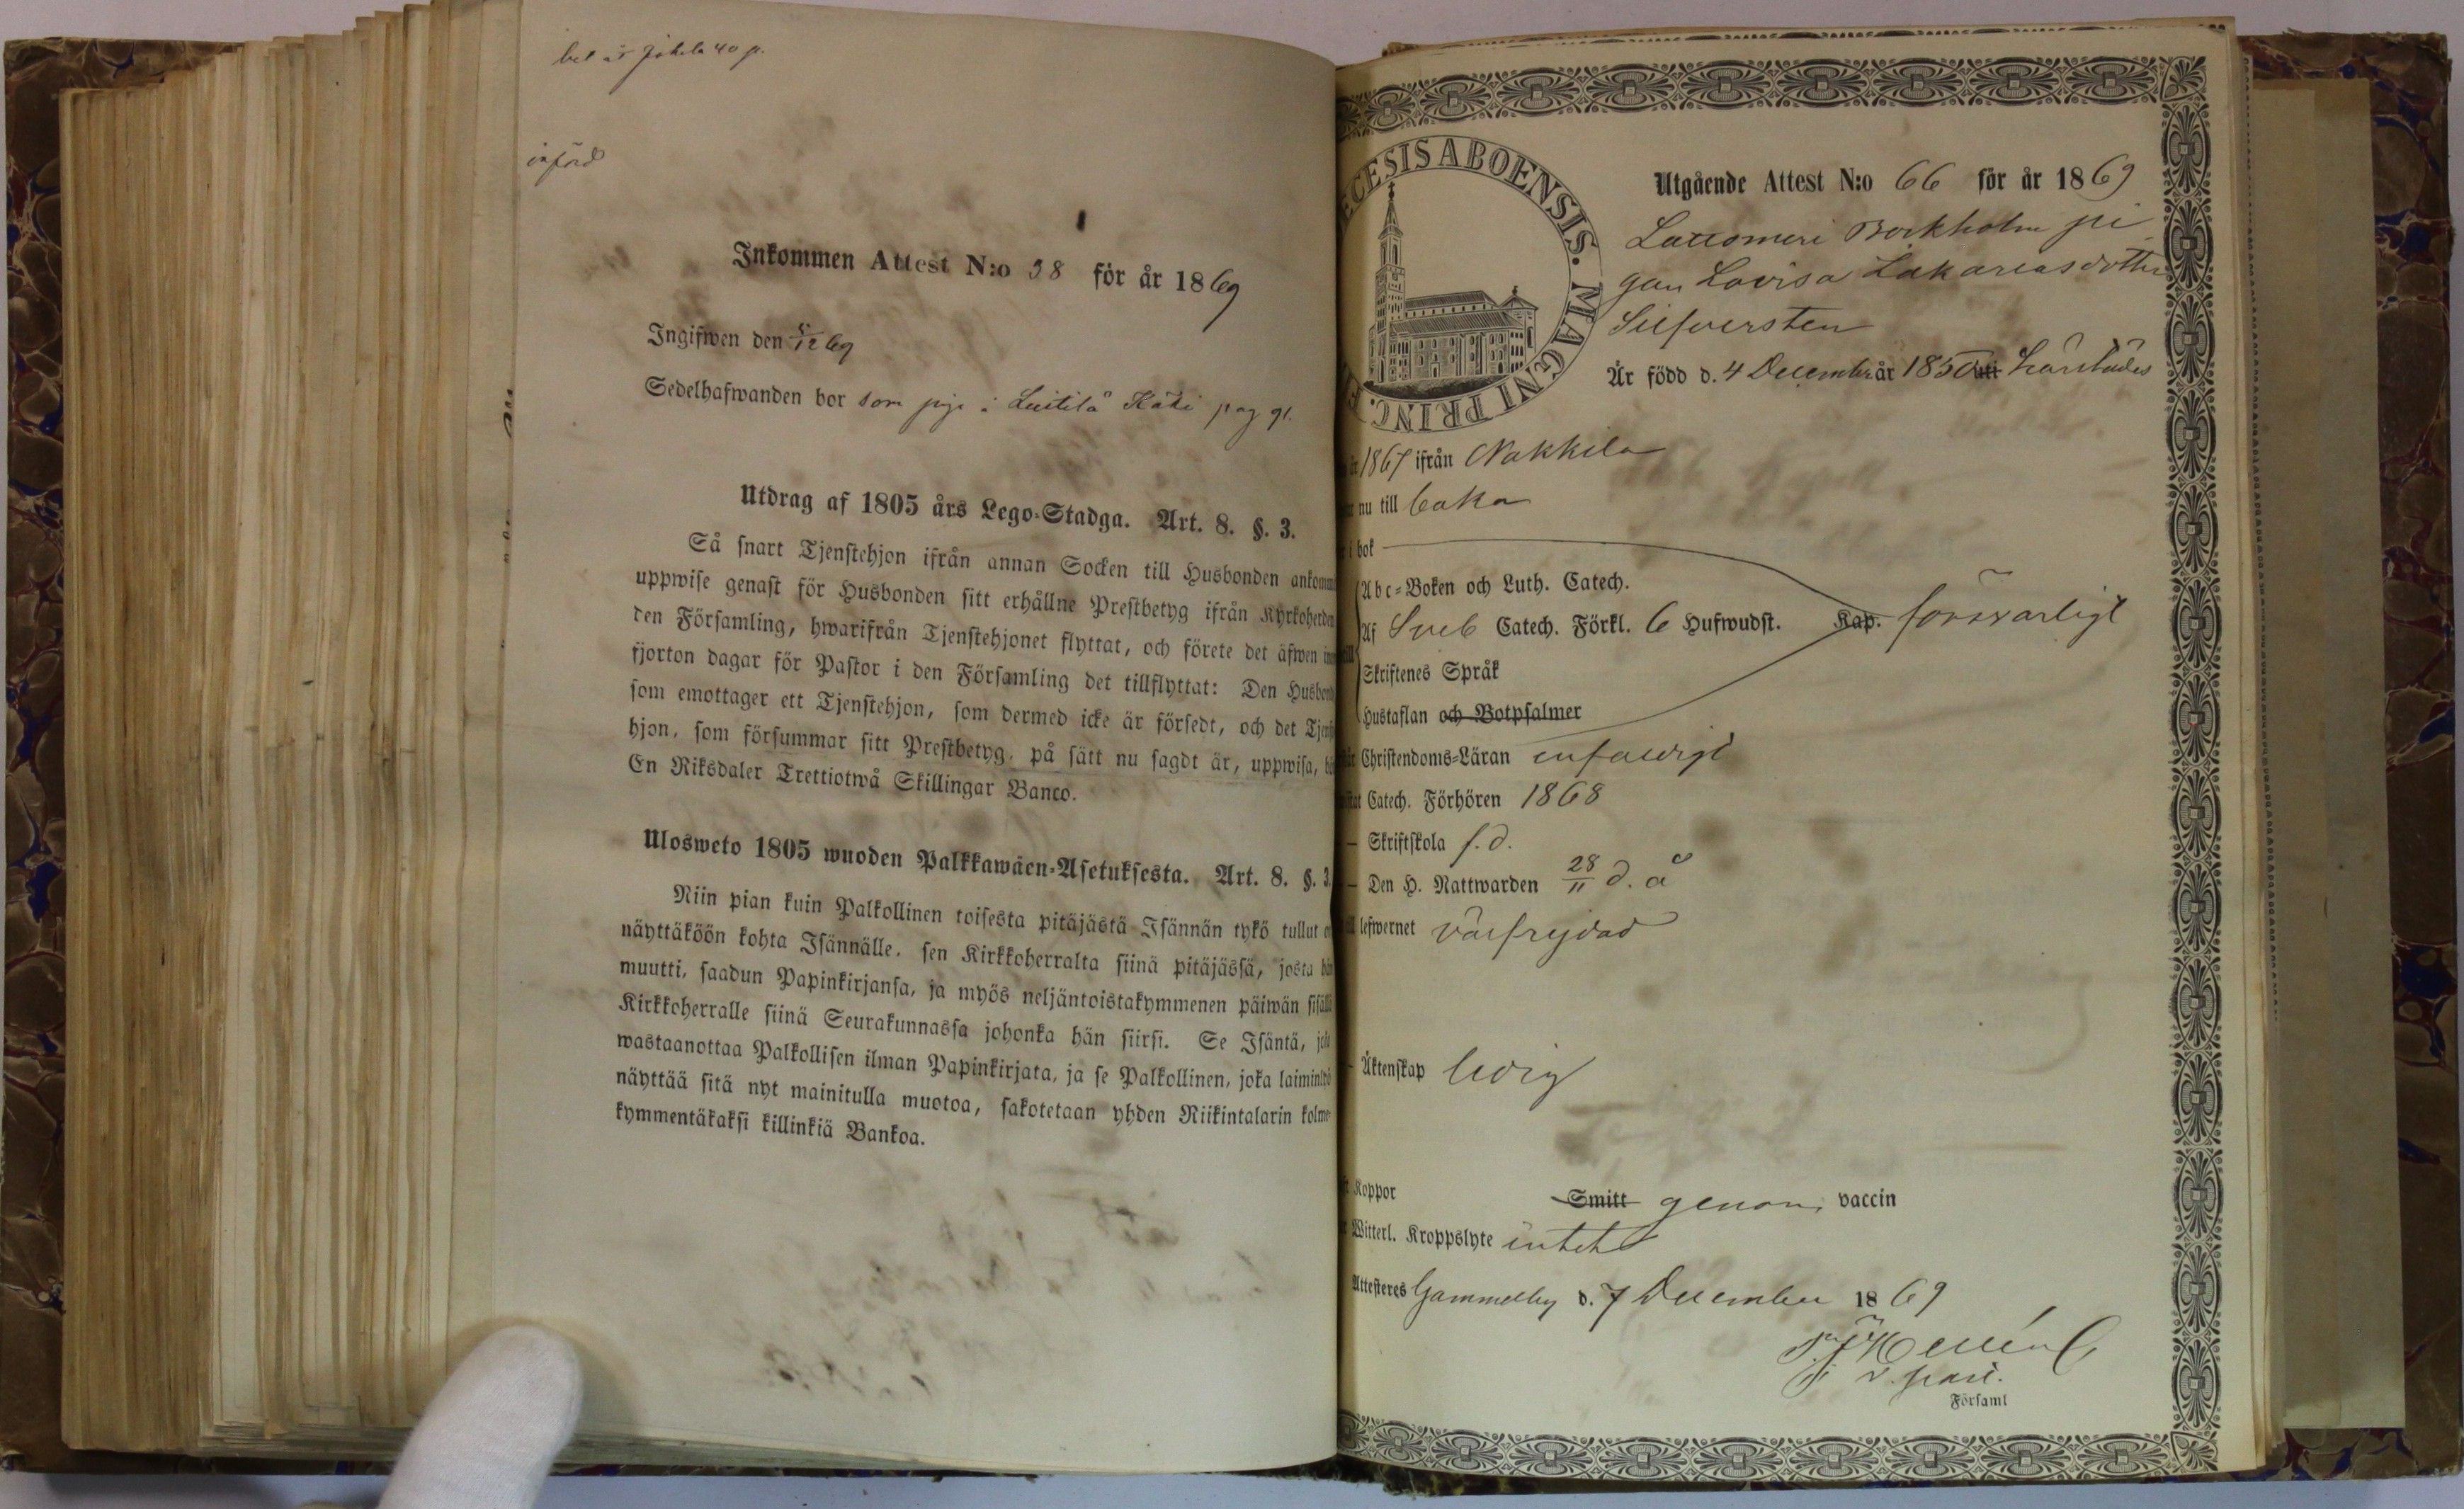 införd
Inkommen Attest N:o 38 för år 1869
Ingifwen den
Sedelhafwanden bor som piga i Luitila
Utdrag af 1805 års Lego-Stadga. Art. 8. §. 3.
Så snart Tjenstehjon ifrån annan Socken till Husbonden ankomm
uppwise genast för Husbonden sitt erhållne Prestbetyg ifrån Kyrkoherden
den Församling, hwarifrån Tjenstehjonet flyttat, och förete det äfwen in
fjorton dagar för Pastor i den Församling det tillflyttat: Den Husbond
som emottager ett Tjenstehjon, som dermed icke är försedt, och det Tjenst
hjon, som försummar sitt Prestbetyg, på sätt nu sagdt är, uppwisa, bö
En Riksdaler Trettiotwå Skillingar Banco.
Ulosweto 1805 wuoden Palkkawäen-Asetuksesta. Art. 8. §. 3.
Niin pian kuin Palkollinen toisesta pitäjästä Isännän tykö tullut on
näyttäköön kohta Isännälle, sen Kirkkoherralta siinä pitäjässä, josta hän
muutti, saadun Papinkirjansa, ja myös neljäntoistakymmenen päiwän sisällä
Kirkkoherralle siinä Seurakunnassa johonka hän siirsi. Se Isäntä, joka
wastaanottaa Palkollisen ilman Papinkirjata, ja se Palkollinen, joka laiminlyö
näyttää sitä nyt mainitulla muotoa, sakotetaan yhden Riikintalarin kolme-
kymmentäkaksi killinkiä Bankoa.
ECESIS ABOENSIS. MAGNI PRINC.
Utgående Attest N:o 66 för år 1869
Lattomeri Borkholm pi
gan Lovisa Zakariasdotter
Silfversten
Är född d. 4 December år 1850 uti härstädes
år 1867 ifrån Nakkila
nu till
i bok
Abc-Boken och Luth. Catech.
Af Sveb Catech. Förkl. 6 Hufwudst. Kap. försvarligt
Skriftenes Språk
Hustaflan och Botpsalmer
Christendoms-Läran enfaldigt
Catech. Förhören 1868
— Skriftskola f.d.
— Den H. Nattwarden 28/11 d. å
till lefwernet välfrejdad
Äktenskap ledig
Koppor Smitt genom vaccin
Witterl. Kroppslyte intet
Attesteres Gammelby d. 7 December 1869
v. past.
Församl